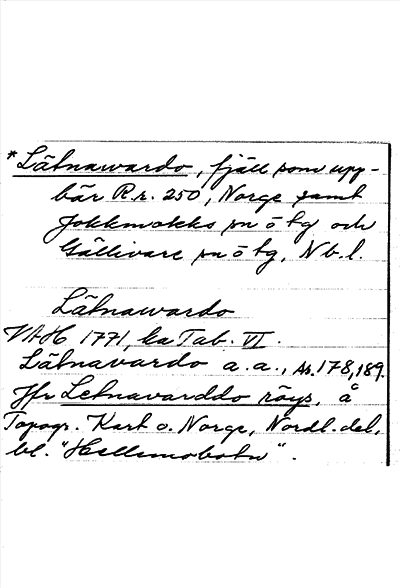 *Lätnawardo, fjäll som upp-
bär R.r. 250, Norge samt
Jokkmokks sn ö tg och
Gällivare sn ö tg, Nb.l.
Lätnawardo
VAH 1771, ka Tab. VI.
Lätnavardo a.a., As. 178, 189.
Jfr Letnavarddo röys, å
Topogr. Kart o. Norge, Nordl. del,
bl. "Hellemobotn".